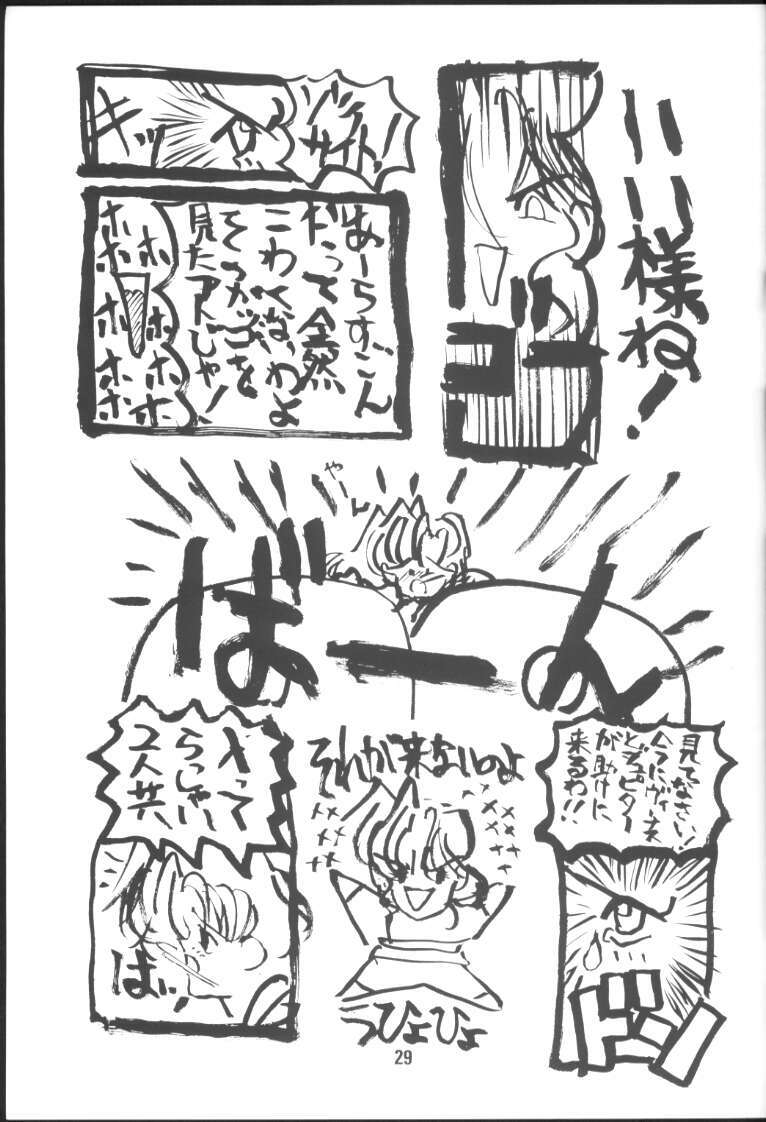 いい様ね!
ゾイ
サイト!
キッ
あーらすごん
だって全然
こわくないわよ
そのかっこを
見たアトじゃ!
ホホホホ
ホホホホホホ
やーん
ばーん
見てなさい!
今にヴィーナス
とジュピター
が助けに
来るわ!!
それが来ないのよ
うひょひょ
入って
らっしゃい
2人共
29